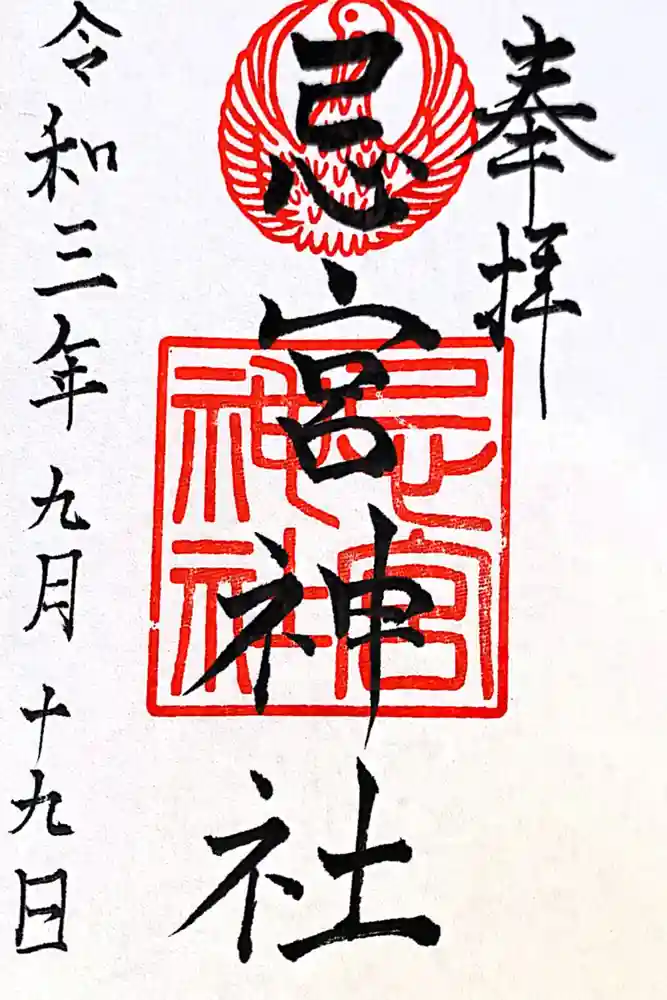 奉拝
忌宮神社
忌宮神社
令和三年九月十九日